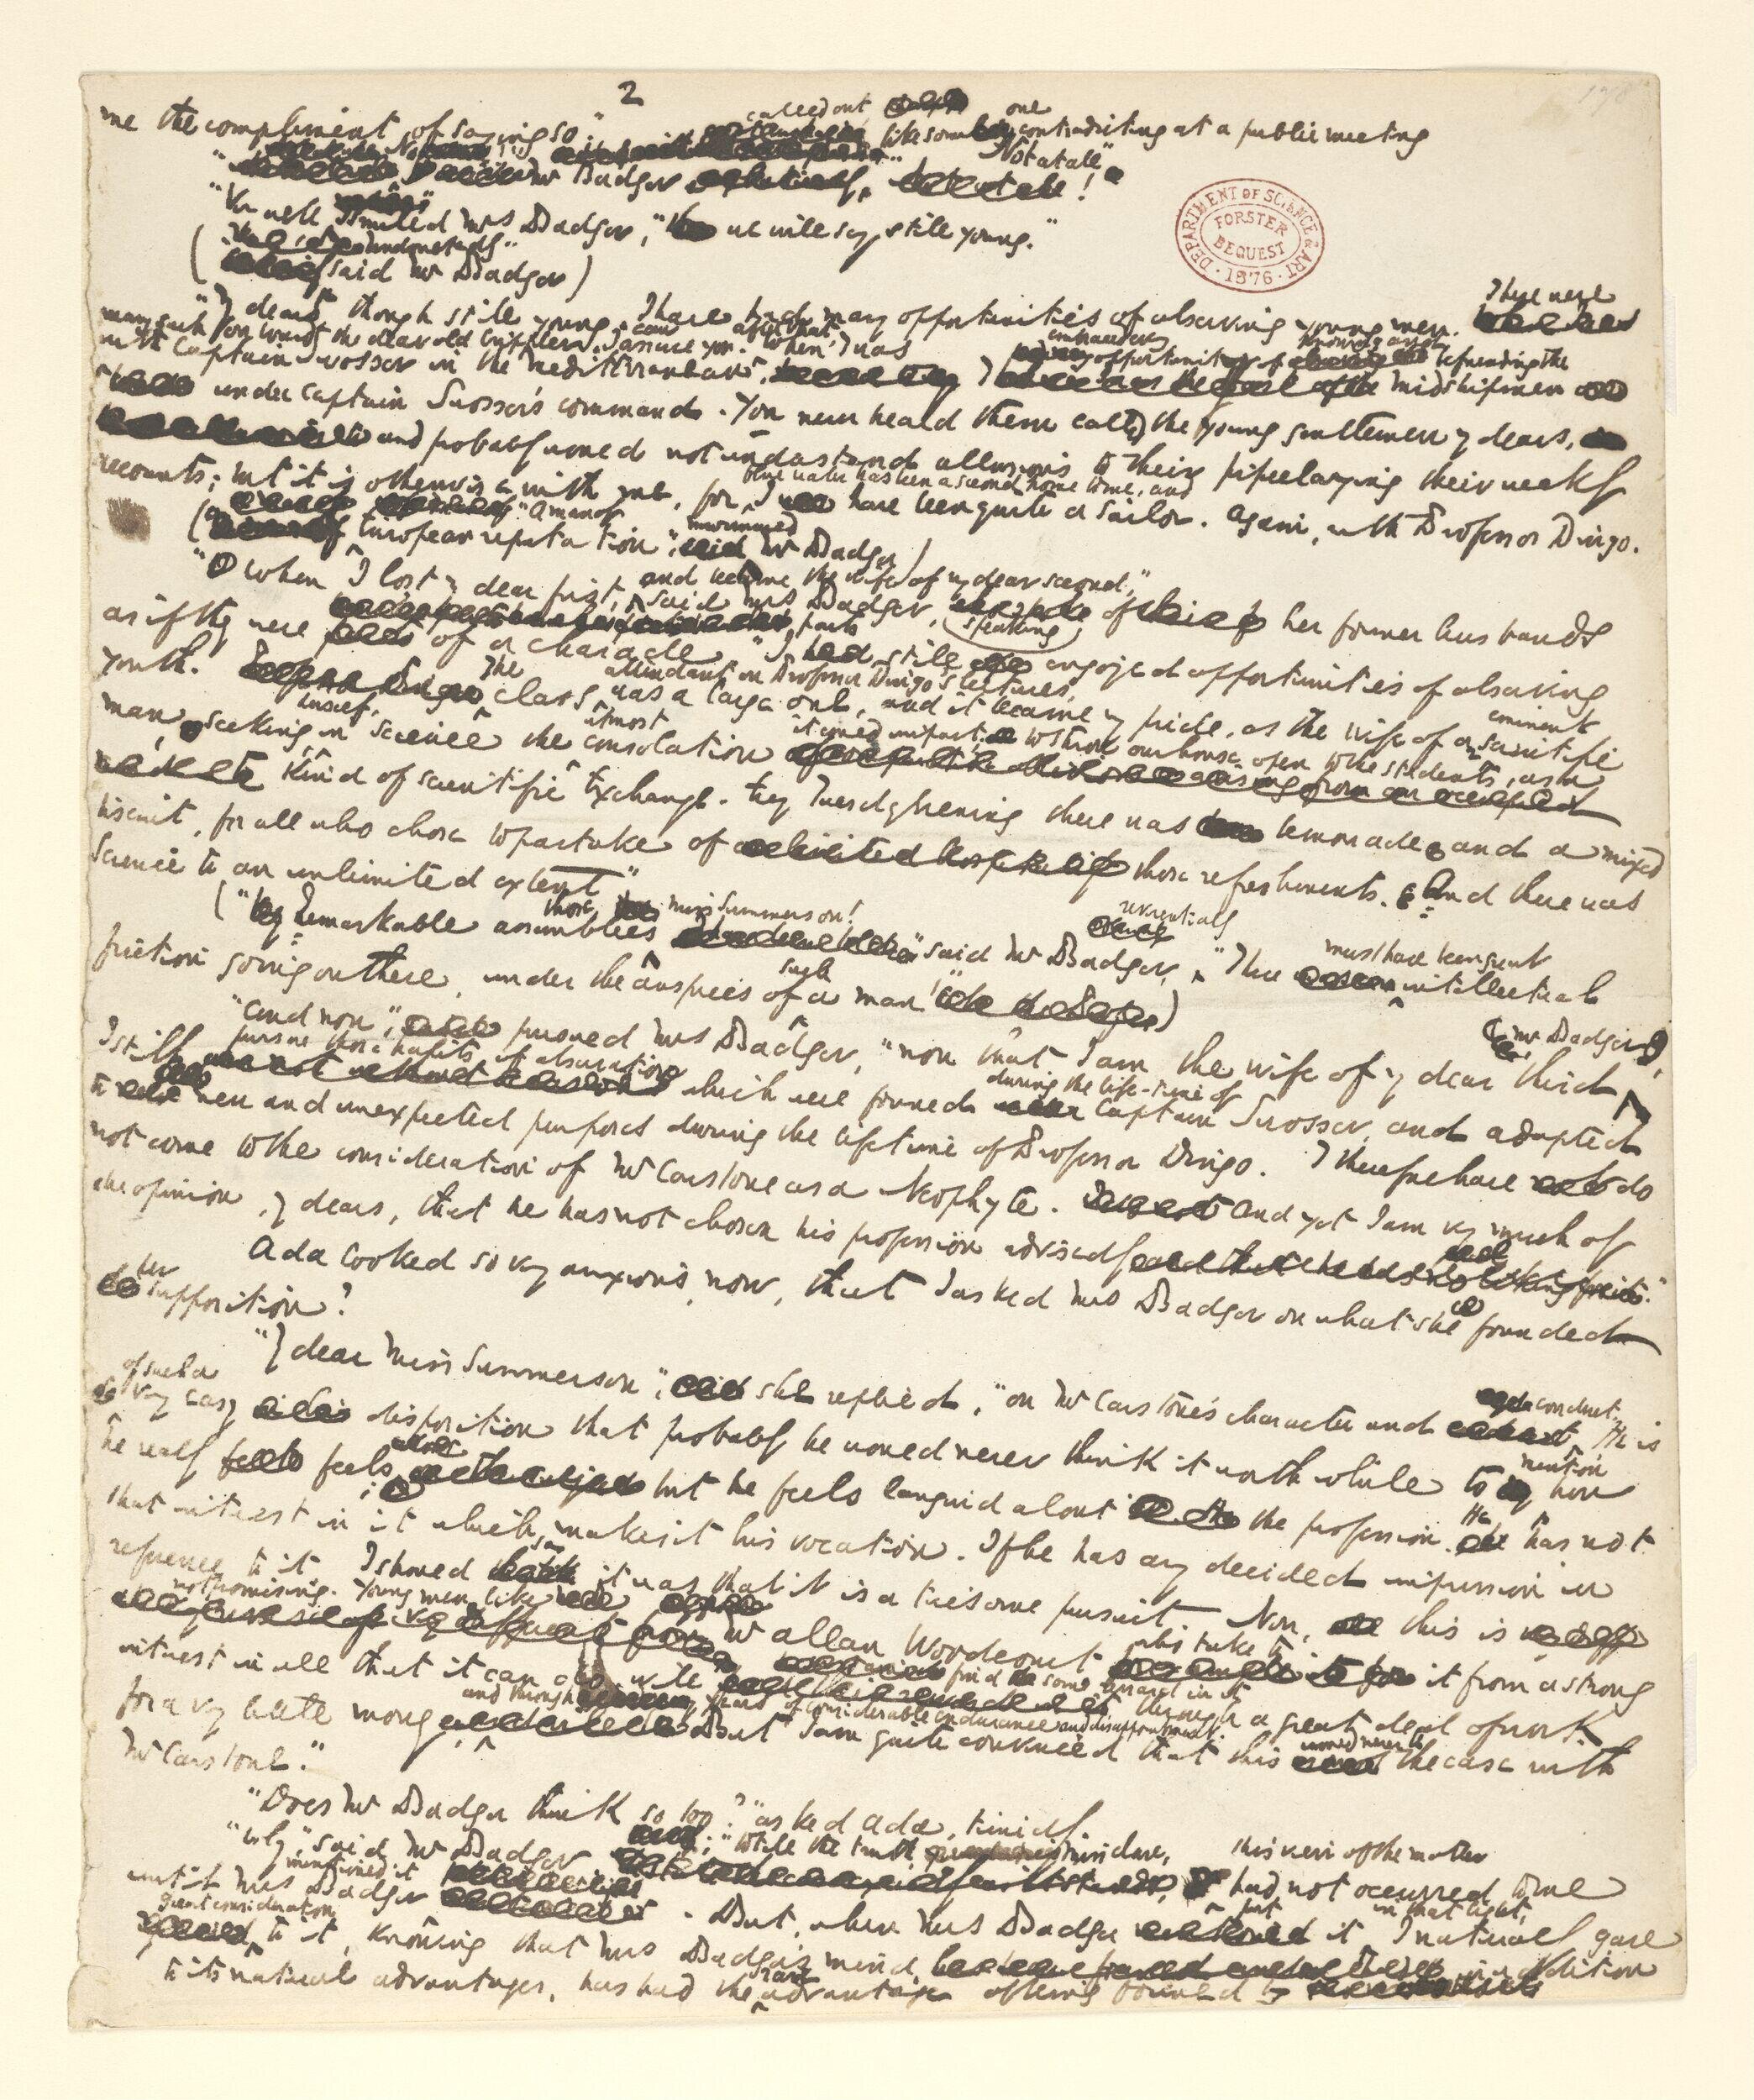 2
178
me the compliment of saying so."
called out, like some one contradicting at a public meeting
Mr Badger "Not at all!"
"Very well," smiled Mrs Badger, "we will say, still young."
"undoubtedly."
(said Mr Badger)
"My dears, though still young, I have had many opportunities of observing young men. There were
many such on board the dear old Crippler, I assure you. After that, when I was
with Captain Swosser in the Mediterranean, I embraced every opportunity of knowing and befriending the midshipmen
under Captain Swosser's command. You never heard them called the young gentlemen, my dears,
and probably would not understand allusions to their pipeclaying their weekly
accounts; but it is otherwise with me, for blue water has been a second home to me, and I have been quite a sailor. Again, with Professor Dingo.
("A man of European reputation", murmured Mr Badger)
"When I lost my dear first, and became the wife of my dear second," said Mrs Badger, speaking of her former husbands
as if they were parts of a charade, "I still enjoyed opportunities of observing
youth. The class attendant on Professor Dingo's lectures was a large one, and it became my pride, as the wife of an eminent scientific
man, seeking herself, in science the utmost consolation it could impart, to throw our house open to the students, as a
kind of scientific Exchange. Every Tuesday evening there was lemonade and a mixed
biscuit, for all who chose to partake of those refreshments. And there was
Science to an unlimited extent"
("Very remarkable assemblies those, Miss Summerson!" said Mr Badger, reverentially "There must have been great intellectual
friction going on there, under the auspices of such a man!")
"And now", pursued Mrs Badger, "now that I am the wife of my dear third Mr Badger,
I still pursue those habits of observation which were formed during the life-time of Captain Swosser, and adapted
to new and unexpected purposes during the lifetime of Professor Dingo. I therefore have not do
not come to the consideration of Mr Carstone as a Neophyte. And yet I am very much of
the opinion, my dears, that he has not chosen his profession advisedly."
Ada looked so very anxious, now, that I asked Mrs Badger on what she founded
her supposition?
"My dear Miss Summerson", she replied, "on Mr Carstone's character and conduct. He is
of such a very easy disposition that probably he would never think it worth while to mention how
he really feels; but he feels languid about the profession. He has not
that interest in it which makes it his vocation. If he has any decided impression in
reference to it I should say it was that it is a tiresome pursuit. Now, this is
not promising. Young men, like Mr Allan Woodcourt who take to it from a strong
interest in all that it can do, will find some reward in it through a great deal of work
for a very little money and through years of considerable endurance and disappointment. But I am quite convinced that this would never be the case with
Mr Carstone."
"Does Mr Badger think so too?" asked Ada, timidly.
"Why," said Mr Badger "to tell the truth, Miss Clare, this view of the matter had not occurred to me
until Mrs Badger mentioned it. But, when Mrs Badger put it in that light, I naturally gave
great consideration to it, knowing that Mrs Badger's mind, in addition
to its natural advantages, has had the rare advantage of being formed by
DEPARTMENT OF SCIENCE & ART
FORSTER
BEQUEST
1876